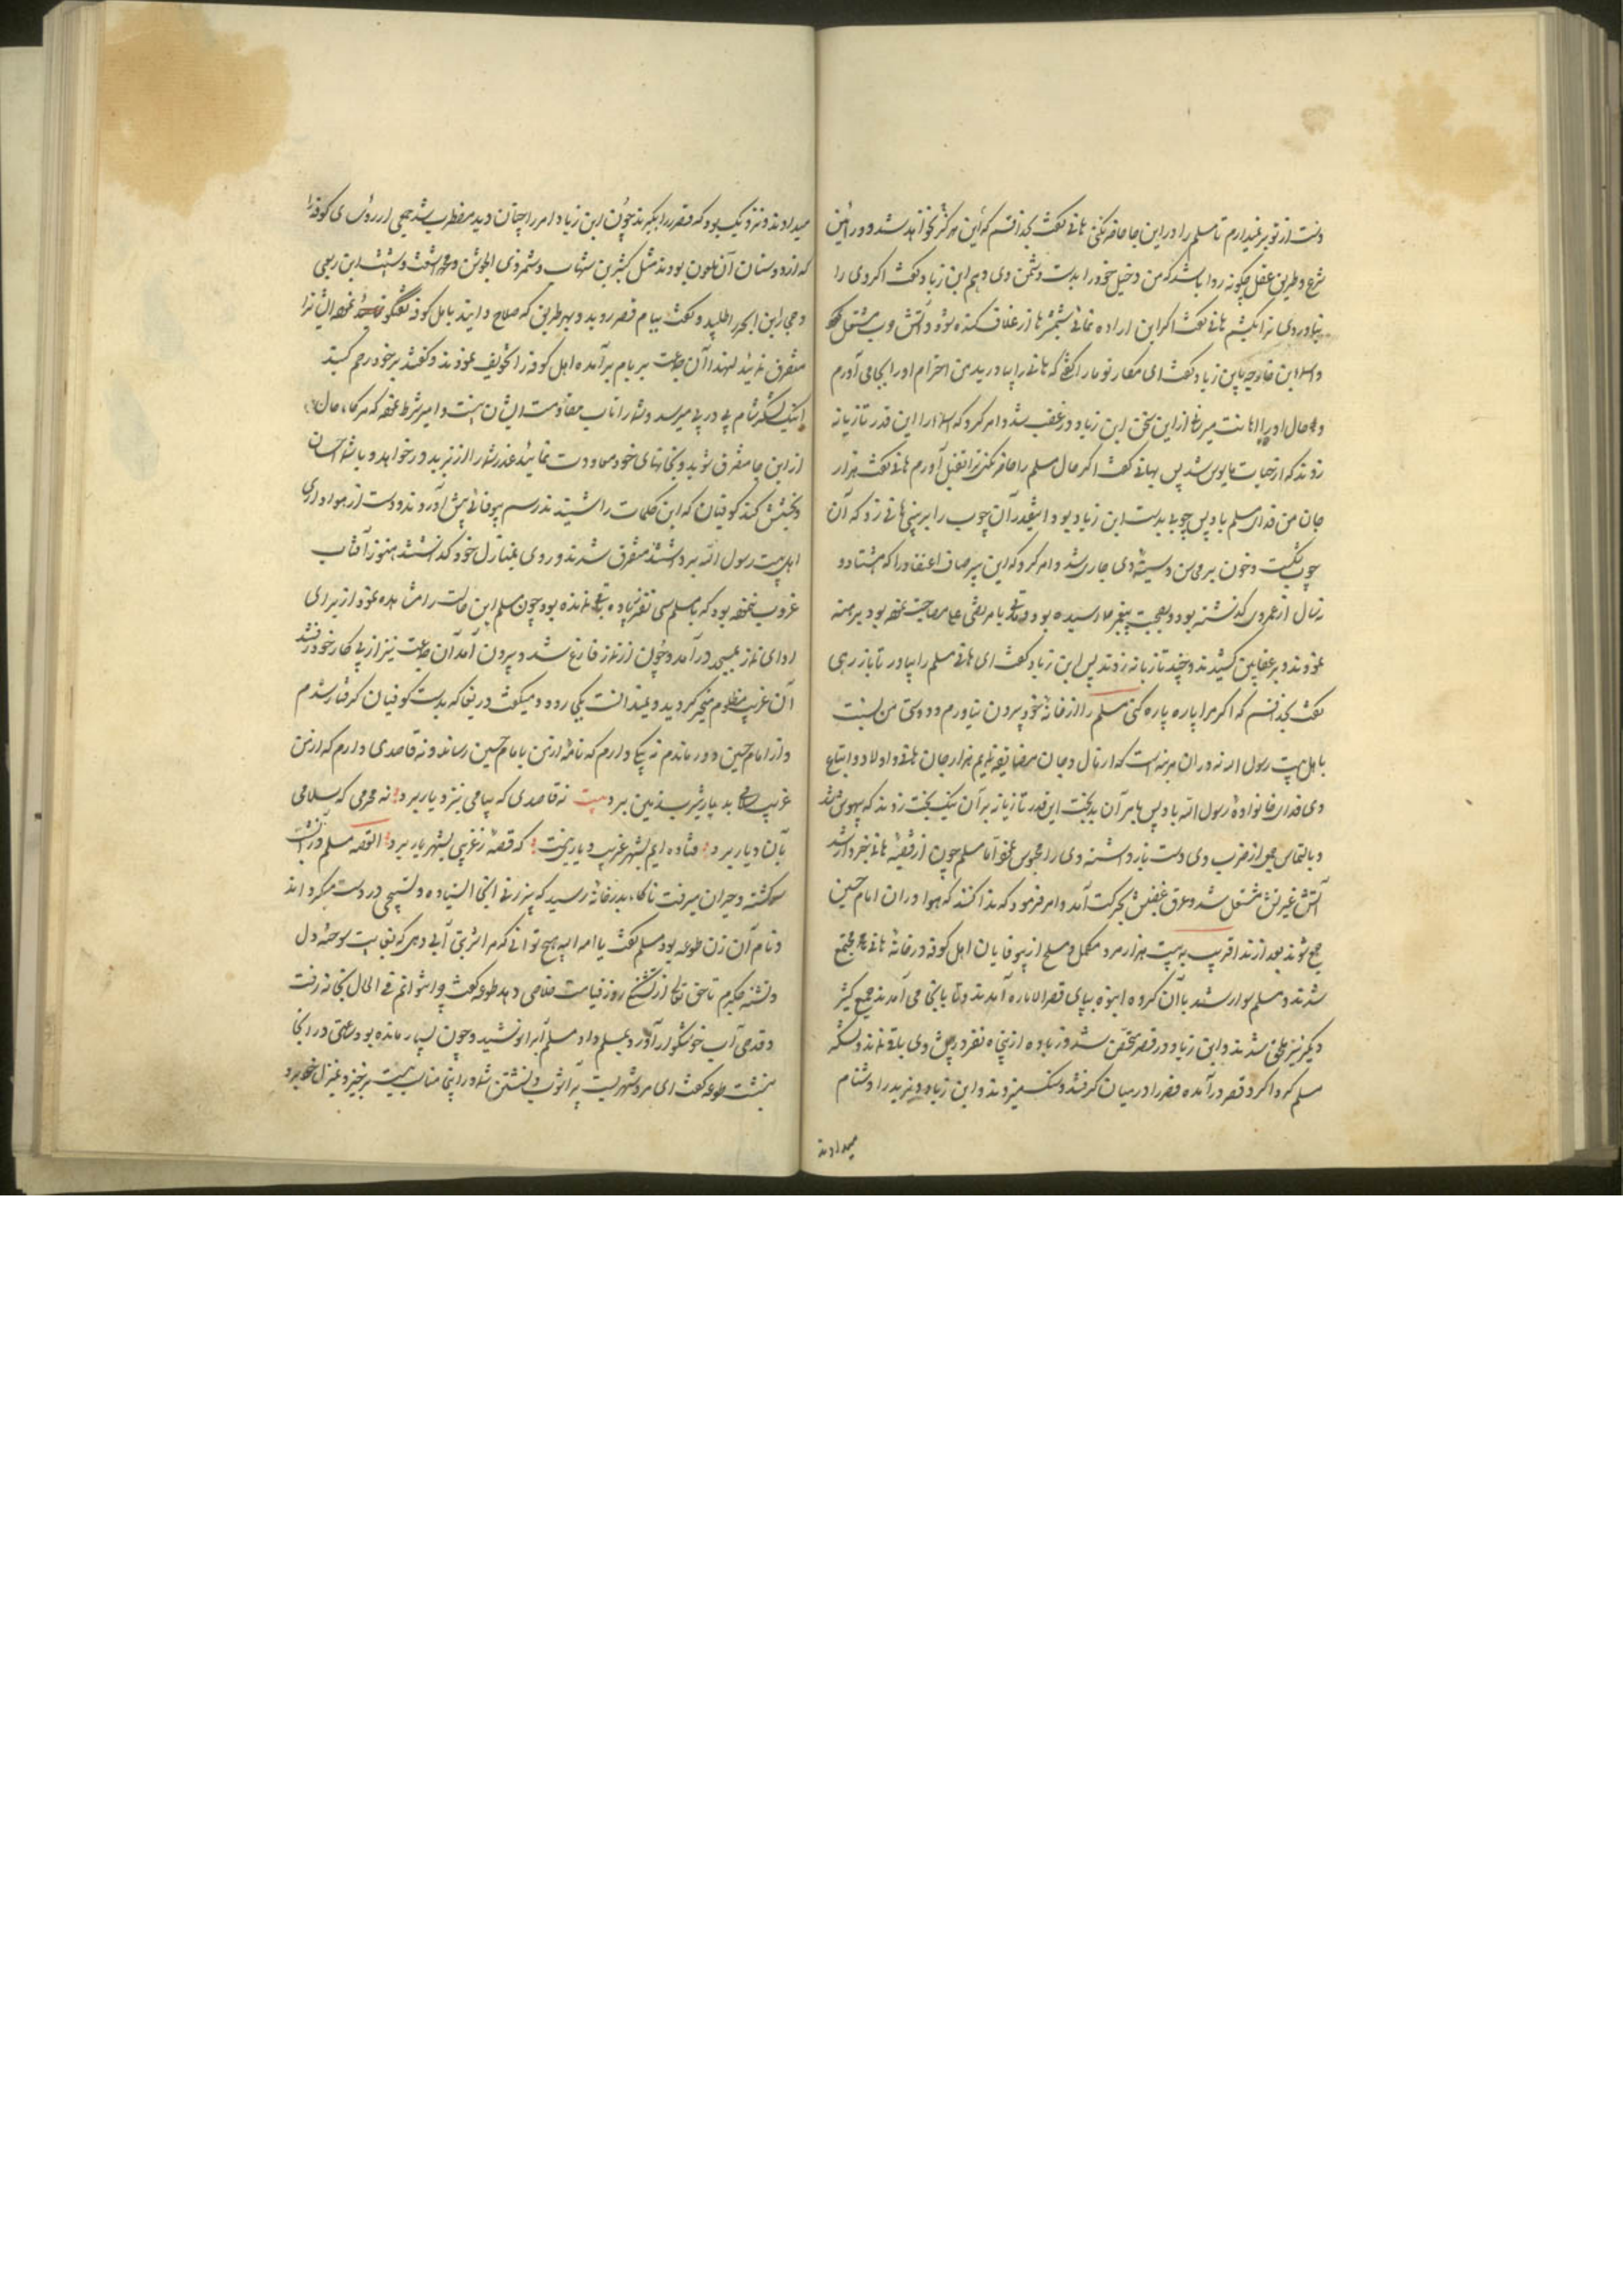 دست از تو بر نمیدارم تا مسلم را در این جا حاضر نکنی هانی گفت بخدا قسم که این هرگز نخواهد شد و در آئین
شرع و طریق عقل چگونه روا باشد که من دخیل خود را بدست دشمن وی دهم ابن زیاد گفت اگر وی را
نیاوردی ترا بکشم هانی گفت اگر این اراده نمائی شمشیرها از غلاف کنده شود و آتش حرب مشتعل
ابن زیاد گفت ای مکار تو ما را گفتی که هانی را بیاورید من احترام او را بجا می آورم
و حال او را اهانت میرسانی از این سخن ابن زیاد در غضب شد و امر کرد که را این قدر تازیانه
زدند که از حیات مایوس شد پس بهانی گفت اگر حال مسلم را حاضر نکنی ترا بقتل آورم هانی گفت هزار
جان من فدای مسلم باد پس چوبی بدست ابن زیاد بود آنقدر آن چوب را بر بینی هانی زد که آن
چوب شکست و خون بر محاسن و سینه وی جاری شد و امر کرد که این پیر صاف اعتقاد را که هشتاد و
نه سال از عمر وی گذشته بود و بصحبت پیغمبر رسیده بود و با مرتضی علی مصاحبت نموده بود برهنه
نمودند و بر عقابین کشیدند و چند تازیانه زدند پس ابن زیاد گفت ای هانی مسلم را بیاور تا باز رهی
گفت بخدا قسم که اگر مرا پاره پاره کنی مسلم را از خانه خود بیرون نیاورم و دوستی من نسبت
باهل بیت رسول الله نه در آن مرتبه است که از مال و جان مضایقه نمایم هزار جان هانی و اولاد و اتباع
وی فدای خانواده رسول الله باد پس بامر آن بدبخت این قدر تازیانه بر آن نیک بخت زدند که بیهوش شد
و بالتماس جمعی از ضرب وی دست باز داشته وی را محبوس نمود اما مسلم چون از قضیه هانی خبردار شد
آتش غیرتش مشتعل شد و عرق غضبش بحرکت آمد و امر فرمود که ندا کنند که هواداران امام حسین
جمع شوند بعد از ندا قریب به بیست هزار مرد مکمل و مسلح از بیوفایان اهل کوفه در خانه هانی مجتمع
شدند و مسلم سوار شد با آن گروه انبوه بپای قصر الاماره آمدند و تا بانجا می آمدند جمع کثیر
دیگر نیز ملحق شدند و ابن زیاد در قصر متحصن شد و زیاده از پنجاه نفر در پیش وی باقی نماند و لشکر
مسلم گردا گرد قصر در آمده قصر را در میان گرفتند و سنگ میزدند و ابن زیاد و یزید را دشنام
میدادند
میدادند و نزدیک بود که قصر را بگیرند چون ابن زیاد امر را چنان دید مضطرب شد جمعی از رؤسای کوفه را
که از دوستان آن ملعون بودند مثل کثیر بن شهاب و شمر ذی الجوشن و محمد اشعث و شبث ابن ربعی
و حجار ابن ابجر را طلبید و گفت ببام قصر روید و بهر طریق که صلاح دانید باهل کوفه گفتگو نموده ایشانرا
متفرق نمائید لهذا آن جماعت بر بام بر آمده اهل کوفه را تخویف نمودند و گفتند بر خود رحم کنید
اینک لشکر شام پی در پی میرسد و شما را تاب مقاومت ایشان نیست و امیر شرط نموده که هرگاه حال
از این جا متفرق شوید و بخانهای خود معاودت نمائید عذر شما را از یزید در خواهد و با شما احسان
و بخشش کند کوفیان که این کلمات را شنیدند رسم بیوفائی پیش آوردند و دست از هواداری
اهل بیت رسول الله برداشتند متفرق شدند و روی بمنازل خود گذاشتند هنوز آفتاب
غروب ننموده بود که با مسلم سی نفر زیاده باقی نمانده بود چون مسلم این حالت را مشاهده نمود از برای
ادای نماز بمسجد در آمد و چون از نماز فارغ شد و بیرون آمد آن جماعت نیز از پی کار خود رفتند
آن غریب مظلوم متحیر گردید و نمیدانست بکجا رود و میگفت دریغا که بدست کوفیان گرفتار شدم
و از امام حسین دور ماندم نه پیکی دارم که نامه از من بامام حسین رساند و نه قاصدی دارم که از من
غریب بیت نه قاصدی که پیامی بنزد یار برد نه محرمی که سلامی
بآن دیار برد فتاده ایم بشهر غریب و یاری نیست که قصه ز غریبی بشهریار برد القصه مسلم در آن شب
سرگشته و حیران میرفت ناگاه بدر خانه رسید که پیر زنی آنجا ایستاده و تسبیحی در دست میگرداند
و نام آن زن طوعه بود مسلم گفت یا امة الله هیچ توانی که مرا شربتی آبی دهی که بغایت سوخته دل
و تشنه جگرم تا حق تعالی از تشنگی روز قیامت خلاصی دهد طوعه گفت چرا نتوانم فی الحال بخانه رفت
و قدحی آب خوشگوار آورد و بمسلم داد مسلم آبرا نوشید و چون بسیار مانده بود ساعتی در آنجا
بنشست طوعه گفت ای مرد شهریست پر آشوب و نشستن شما در اینجا مناسب نیست برخیز و بمنزل خود برو